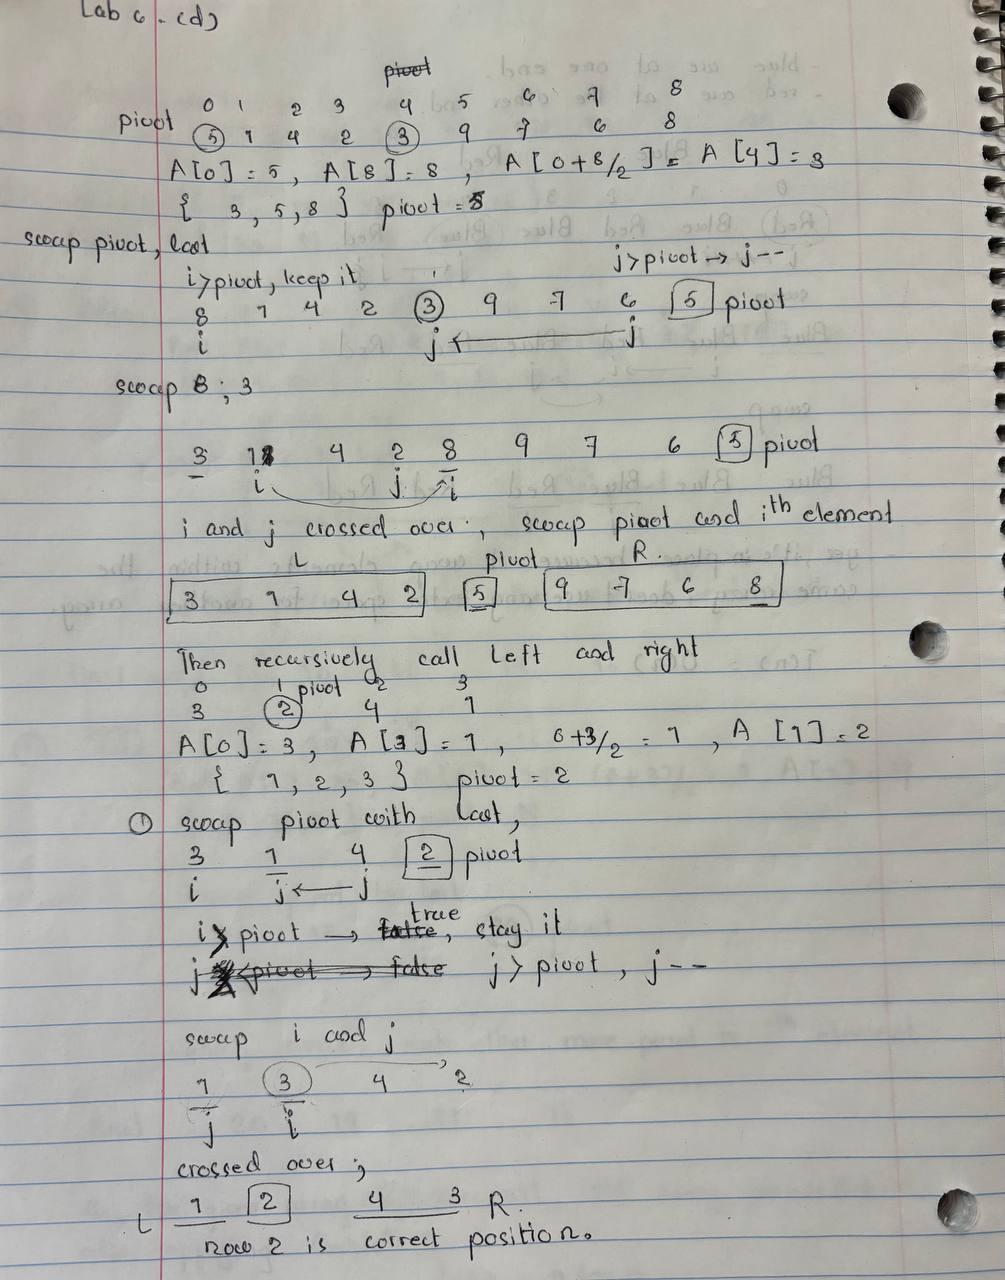 Lab 6 - (d)
0 1 2 3 4 5 6 7 8
pivot 5 1 4 2 3 9 7 6 8
A[0] = 5, A[8] = 8, A[0+8/2] = A[4] = 3
{ 3, 5, 8 } pivot = 5
swap pivot, last
i > pivot, keep it j > pivot → j--
8 1 4 2 3 9 7 6 5 pivot
i j ← j
swap 8, 3
3 1 4 2 8 9 7 6 5 pivot
i j i
i and j crossed over, swap pivot and ith element
L pivot R.
3 1 4 2 5 9 7 6 8
Then recursively call Left and right
0 1 pivot 2 3
3 2 4 1
A[0] = 3, A[3] = 1, 0+3/2 = 1, A[1] = 2
{ 1, 2, 3 } pivot = 2
① swap pivot with last,
3 1 4 2 pivot
i j ← j
i > pivot → true, stay it
j > pivot, j--
swap i and j
1 3 4 2
j i
crossed over;
L 1 2 4 3 R.
now 2 is correct position.